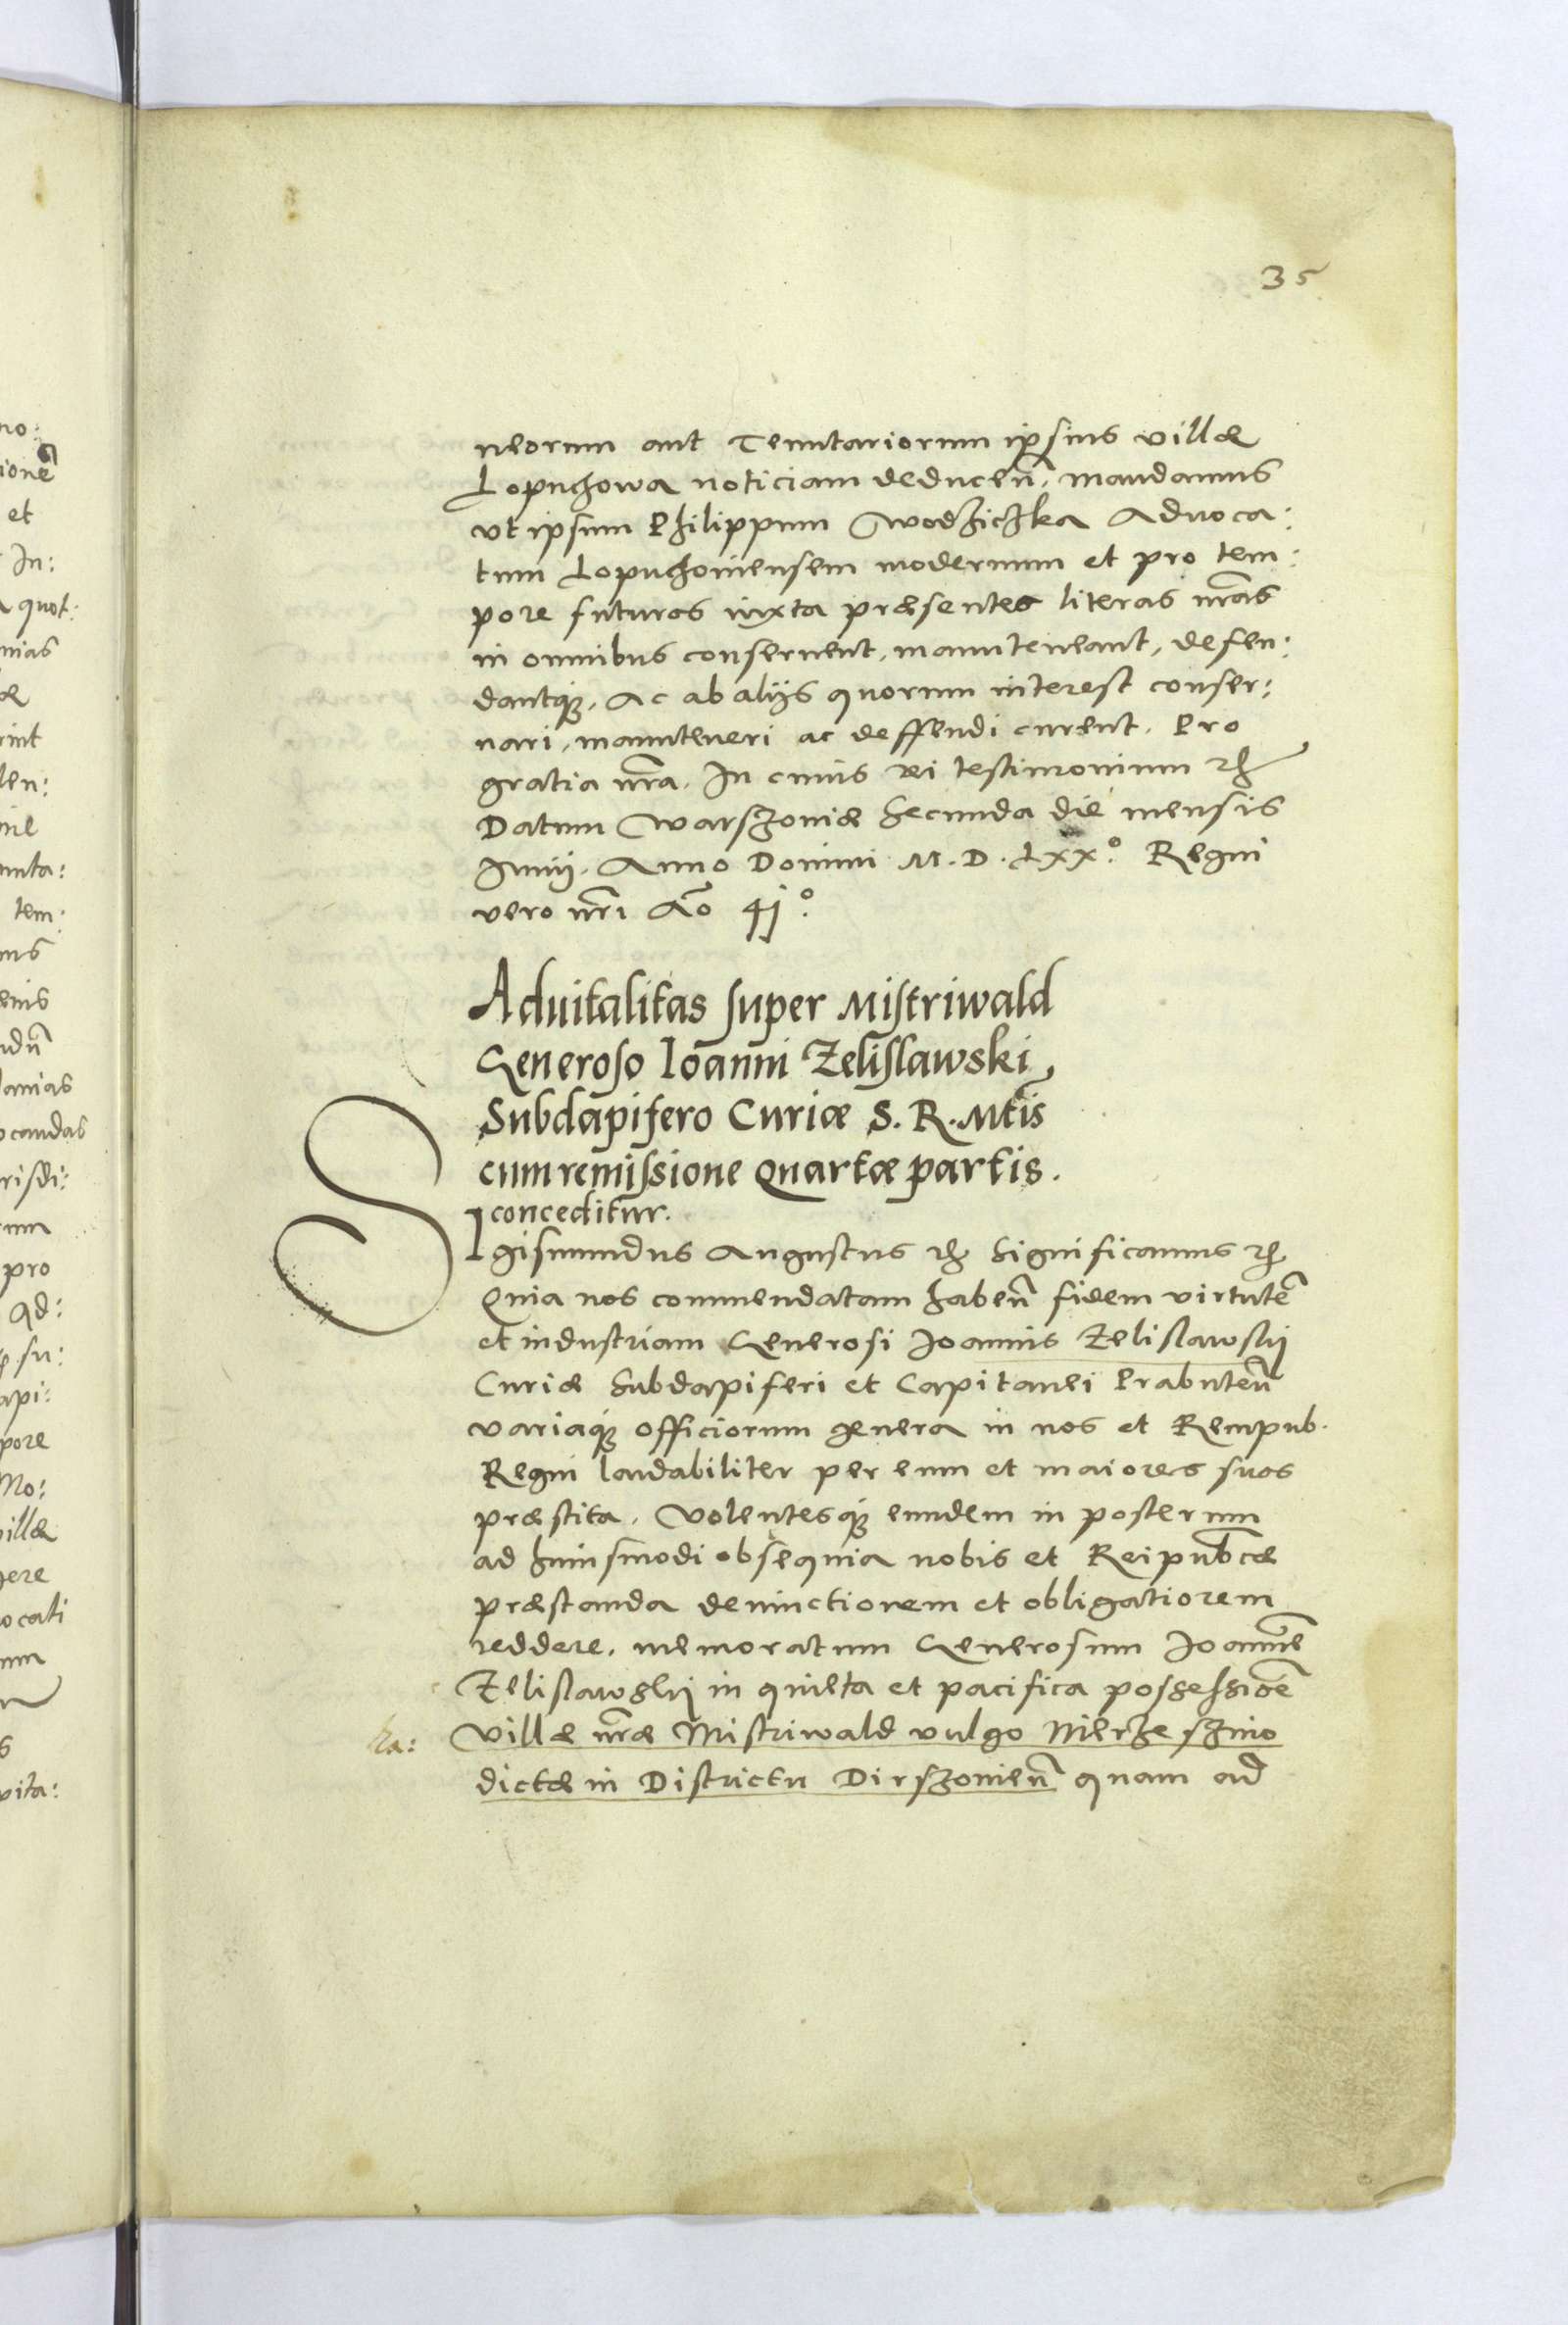 35
neorum aut Tenutariorum ipsius villæ
Lopuchowa noticiam deducen̄, mandamus
vt ipsum Philippum Wodziczka Aduoca:
tum Lopuchouiensem modernum et pro tem:
pore futuros iuxta præsentes literas nr̄as
in omnibus conseruent, manuteneant, defen:
dantq;, Ac ab alijs quorum interest conser:
uari, manuteneri ac deffendi curent. Pro
gratia nr̄a. In cuius rei testimonium etc
Datum Warszouiæ secunda die mensis
Junij. Anno Domini M.D.LXX.º Regni
vero nr̄i Aō 41.º
Aduitalitas super Mistriwald
Generoso Ioanni Zelislawski
Subdapifero Curiæ S. R. Mtis
cum remissione quartæ partis.
conceditur.
SIgismundus Augustus etc Significamus etc
Quia nos commendatam haben̄ fidem virtutē
et industriam Generosi Joannis Zelislawskj
Curiæ Subdapiferi et Capitanei Prabuten̄
variaq; officiorum genera in nos et Rempub.
Regni laudabiliter per eum et maiores suos
præstita. Volentesq; eundem in posterum
ad huiusmodi obsequia nobis et Reipub̄cæ
præstanda deuinctiorem et obligatiorem
reddere, memoratum Generosum Joannē
Zelislawskij in quieta et pacifica possessiōe
Villæ nr̄æ Mistriwald vulgo Mierzeszino
dictæ in Districtu Dirszouien̄ quam ad